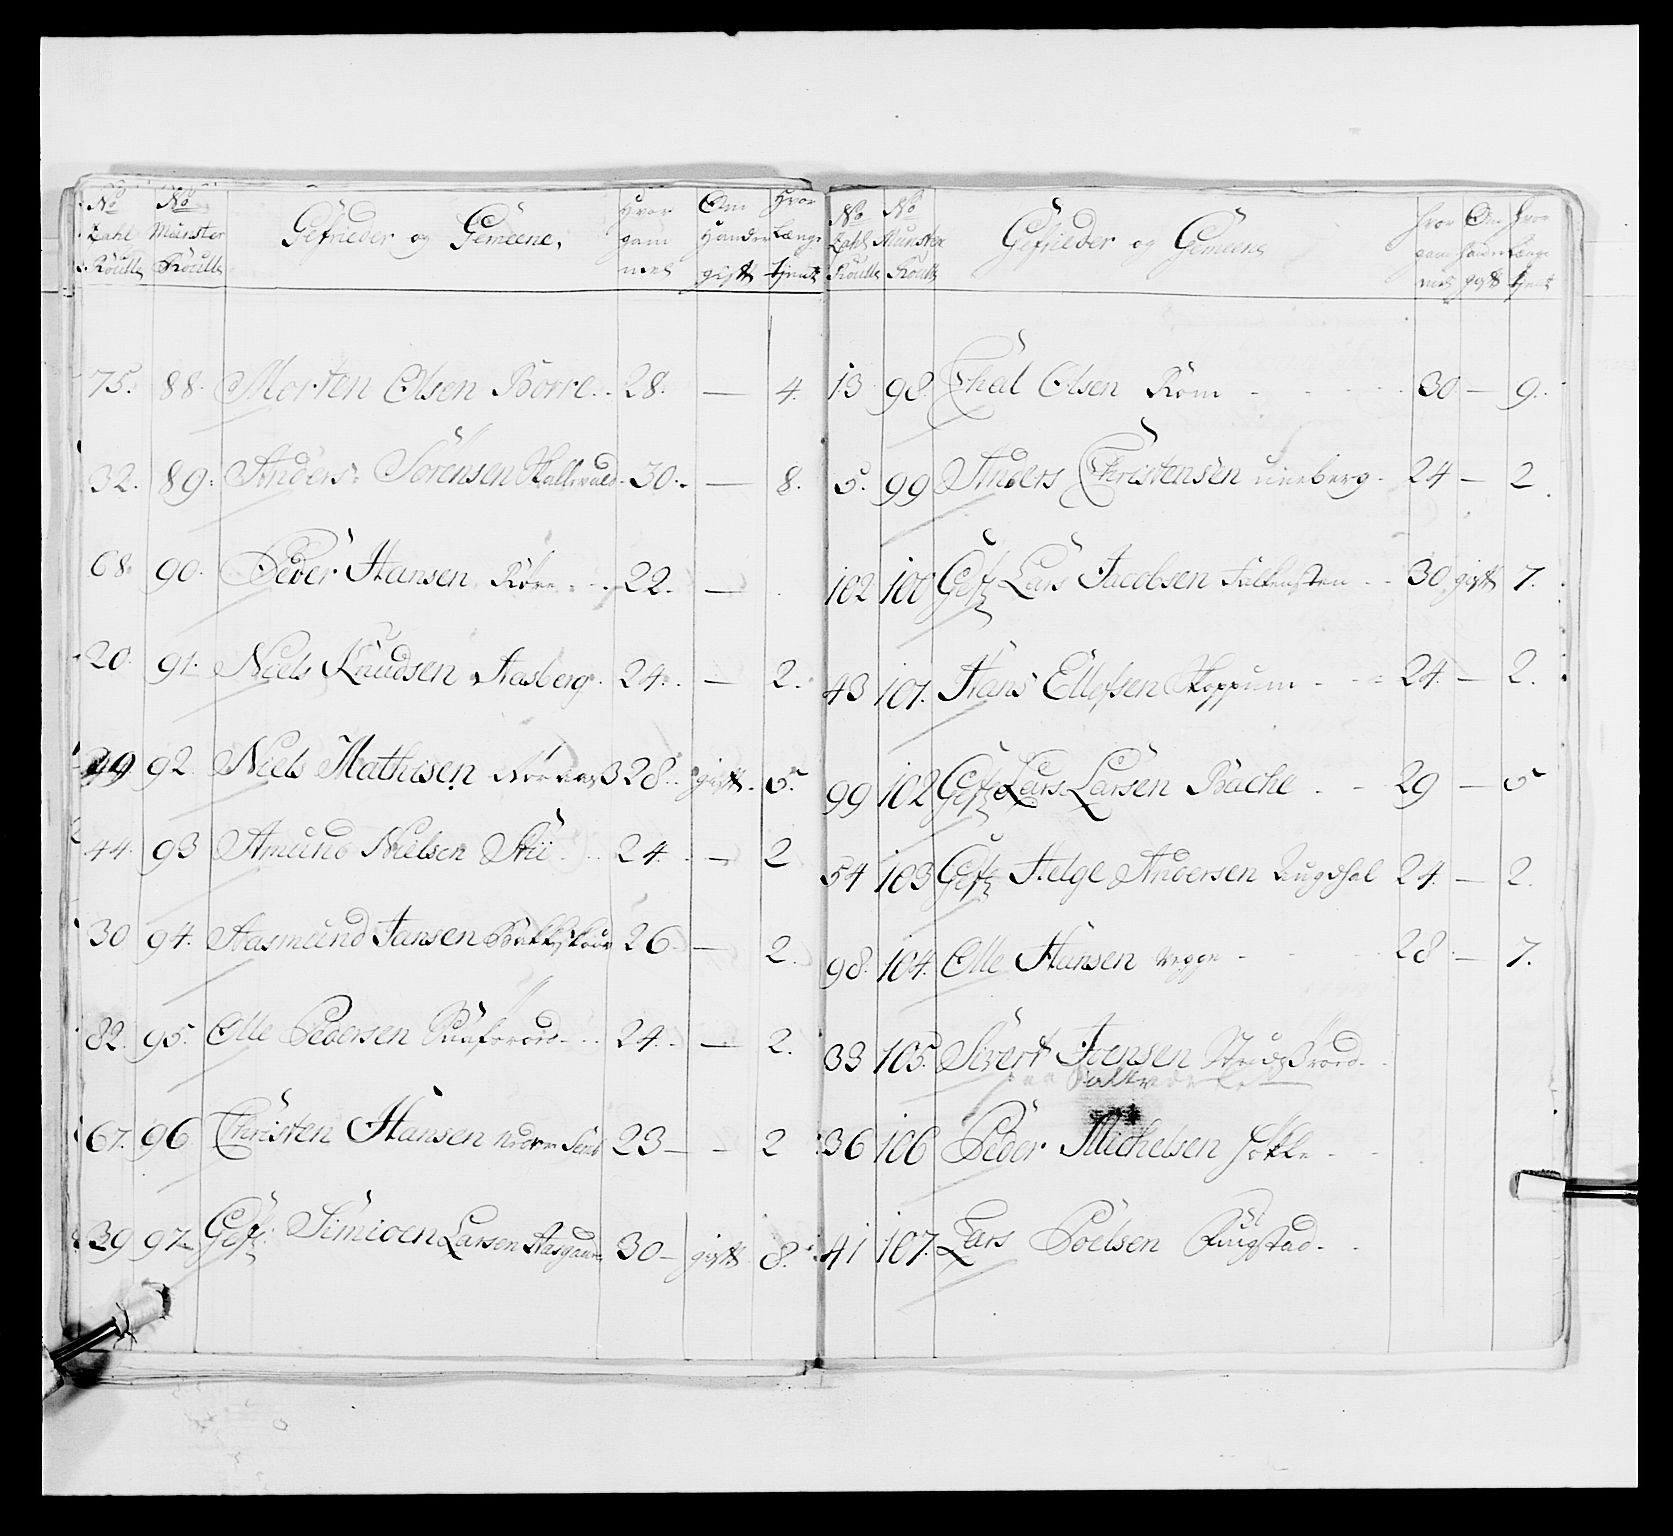 No Zahl Roulle | No Munster Roulle | Gefrieder og Gemeene, | Hvor gam mel | Om Hand er gift | Hvor Længe tjent
75. 88. Morten Olsen Borre 28. — 4.
32. 89. Anders Sörensen 30. — 8.
68. 90. Peder Hansen Röre 22. —
20. 91. Niels Knudsen Aasberg 24. — 2.
49 92 Niels Mathisen 28. gift. 5.
44. 93 Amund Nielsen Stii 24. — 2
30 94. Aasmund Jansen 26 — 2.
82. 95. Olle Pedersen 24. — 2.
67. 96 Christen Hansen 23 — 2
39 97 Gefr. Simioen Larsen Aasgaar 30 — gift 8.
No Zahl Roulle | No Munster Roulle | Gefrieder og Gemeene | Hvor gam mel | Om Hand er gift | Hvor Længe tjent
13 98. Thal Olsen Rom 30 — 9.
5. 99 Anders Christensen Uneberg 24 — 2
102 100 Gefr Lars Jacobsen Falkensten 30 gift 7.
43 101. Hans Ellefsen Skoppum 24. — 2.
99 102 Gefr Lars Larsen Bache 29 — 5
54 103 Gefr Helge Andersen 24. — 2.
98. 104. Olle Hansen Vegge 28 — 7.
33 105. Sivert Joensen
36 106 Peder Michelsen
41 107. Lars Poelsen Rugstad